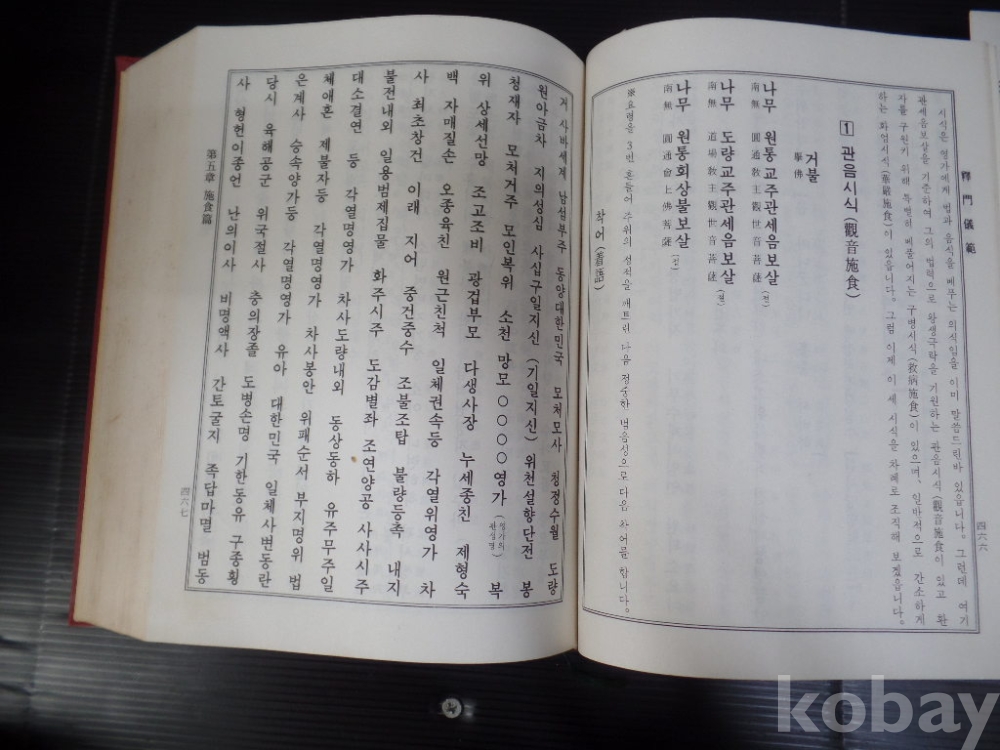 釋門儀範
시식은 영가에게 법과 음식을 베푸는 의식임을 이미 말씀드린바 있읍니다. 그런데 여기
관세음보살을 기준하여 그의 법력으로 왕생극락을 기원하는 관음시식(觀音施食)이 있고 환
자를 구원키 위해 특별히 베풀어지는 구병시식(救病施食)이 있으며, 일반적으로 간소하게
하는 화엄시식(華嚴施食)이 있읍니다. 그럼 이제 이 세 시식을 차례로 조직해 보겠읍니다.
1 관음시식(觀音施食)
거불
擧佛
나무 원통교주관세음보살
南無 圓通敎主觀世音菩薩
나무 도량교주관세음보살
南無 道場敎主觀世音菩薩
나무 원통회상불보살
南無 圓通會上佛菩薩
요령을 3번 흔들어 주위의 정적을 깨트린 다음 정중한 범음성으로 다음 착어를 합니다.
착어(着語)
四六六
거 사바세계 남섬부주 동양대한민국 모처모사 청정수월 도량
원아금차 지의성심 사십구일지신(기일지신) 위천설향단전 봉
청재자 모처거주 모인복위 소천 망모 ○○○○영가 복
위 상세선망 조고조비 광겁부모 다생사장 누세종친 제형숙
백 자매질손 오종육친 원근친척 일체권속등 각열위영가 차
사 최초창건 이래 지어 중건중수 조불조탑 불량등촉 내지
불전내외 일용범제집물 화주시주 도감별좌 조연양공 사사시주
대소결연 등 각열명영가 차사도량내외 동상동하 유주무주일
체애혼 제불자등 각열명영가 차사봉안 위패순서 부지명위 법
은계사 승속양가등 각열명영가 유아 대한민국 일체사변동란
당시 육해공군 위국절사 충의장졸 도병손명 기한동유 구종횡
사 형헌이종언 난의이사 비명액사 간토굴지 족답마멸 범동
第五章 施食篇
四六七
kobay